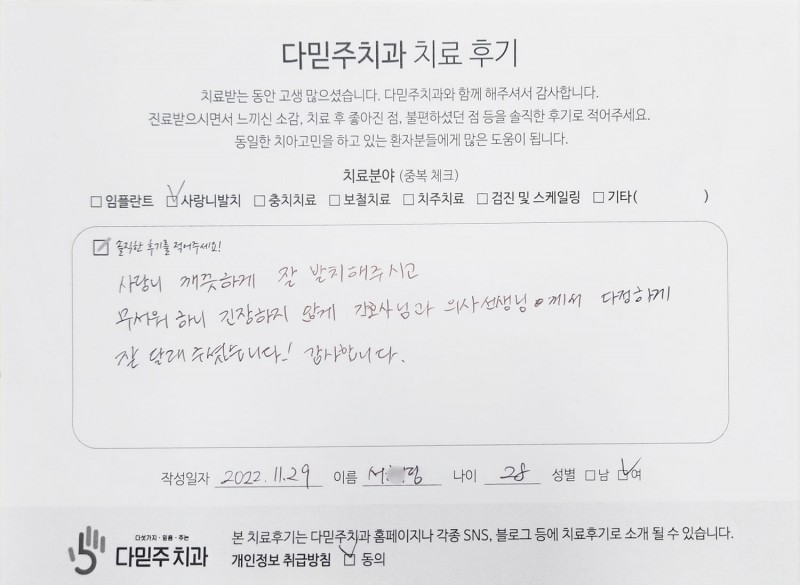 다믿주치과 치료 후기
치료받는 동안 고생 많으셨습니다. 다믿주치과와 함께 해주셔서 감사합니다.
진료받으시면서 느끼신 소감, 치료 후 좋아진 점, 불편하셨던 점 등을 솔직한 후기로 적어주세요.
동일한 치아고민을 하고 있는 환자분들에게 많은 도움이 됩니다.
치료분야 (중복 체크)
☐ 임플란트 ☑ 사랑니발치 ☐ 충치치료 ☐ 보철치료 ☐ 치주치료 ☐ 검진 및 스케일링 ☐ 기타( )
솔직한 후기를 적어주세요!
사랑니 깨끗하게 잘 발치해주시고
무서워 하니 긴장하지 않게 간호사님과 의사선생님께서 다정하게
잘 달래 주셨습니다! 감사합니다.
작성일자 2022.11.29 이름 서 나이 28 성별 ☐ 남 ☑ 여
다섯가지·믿음·주는
다믿주치과
본 치료후기는 다믿주치과 홈페이지나 각종 SNS, 블로그 등에 치료후기로 소개 될 수 있습니다.
개인정보 취급방침 ☑ 동의